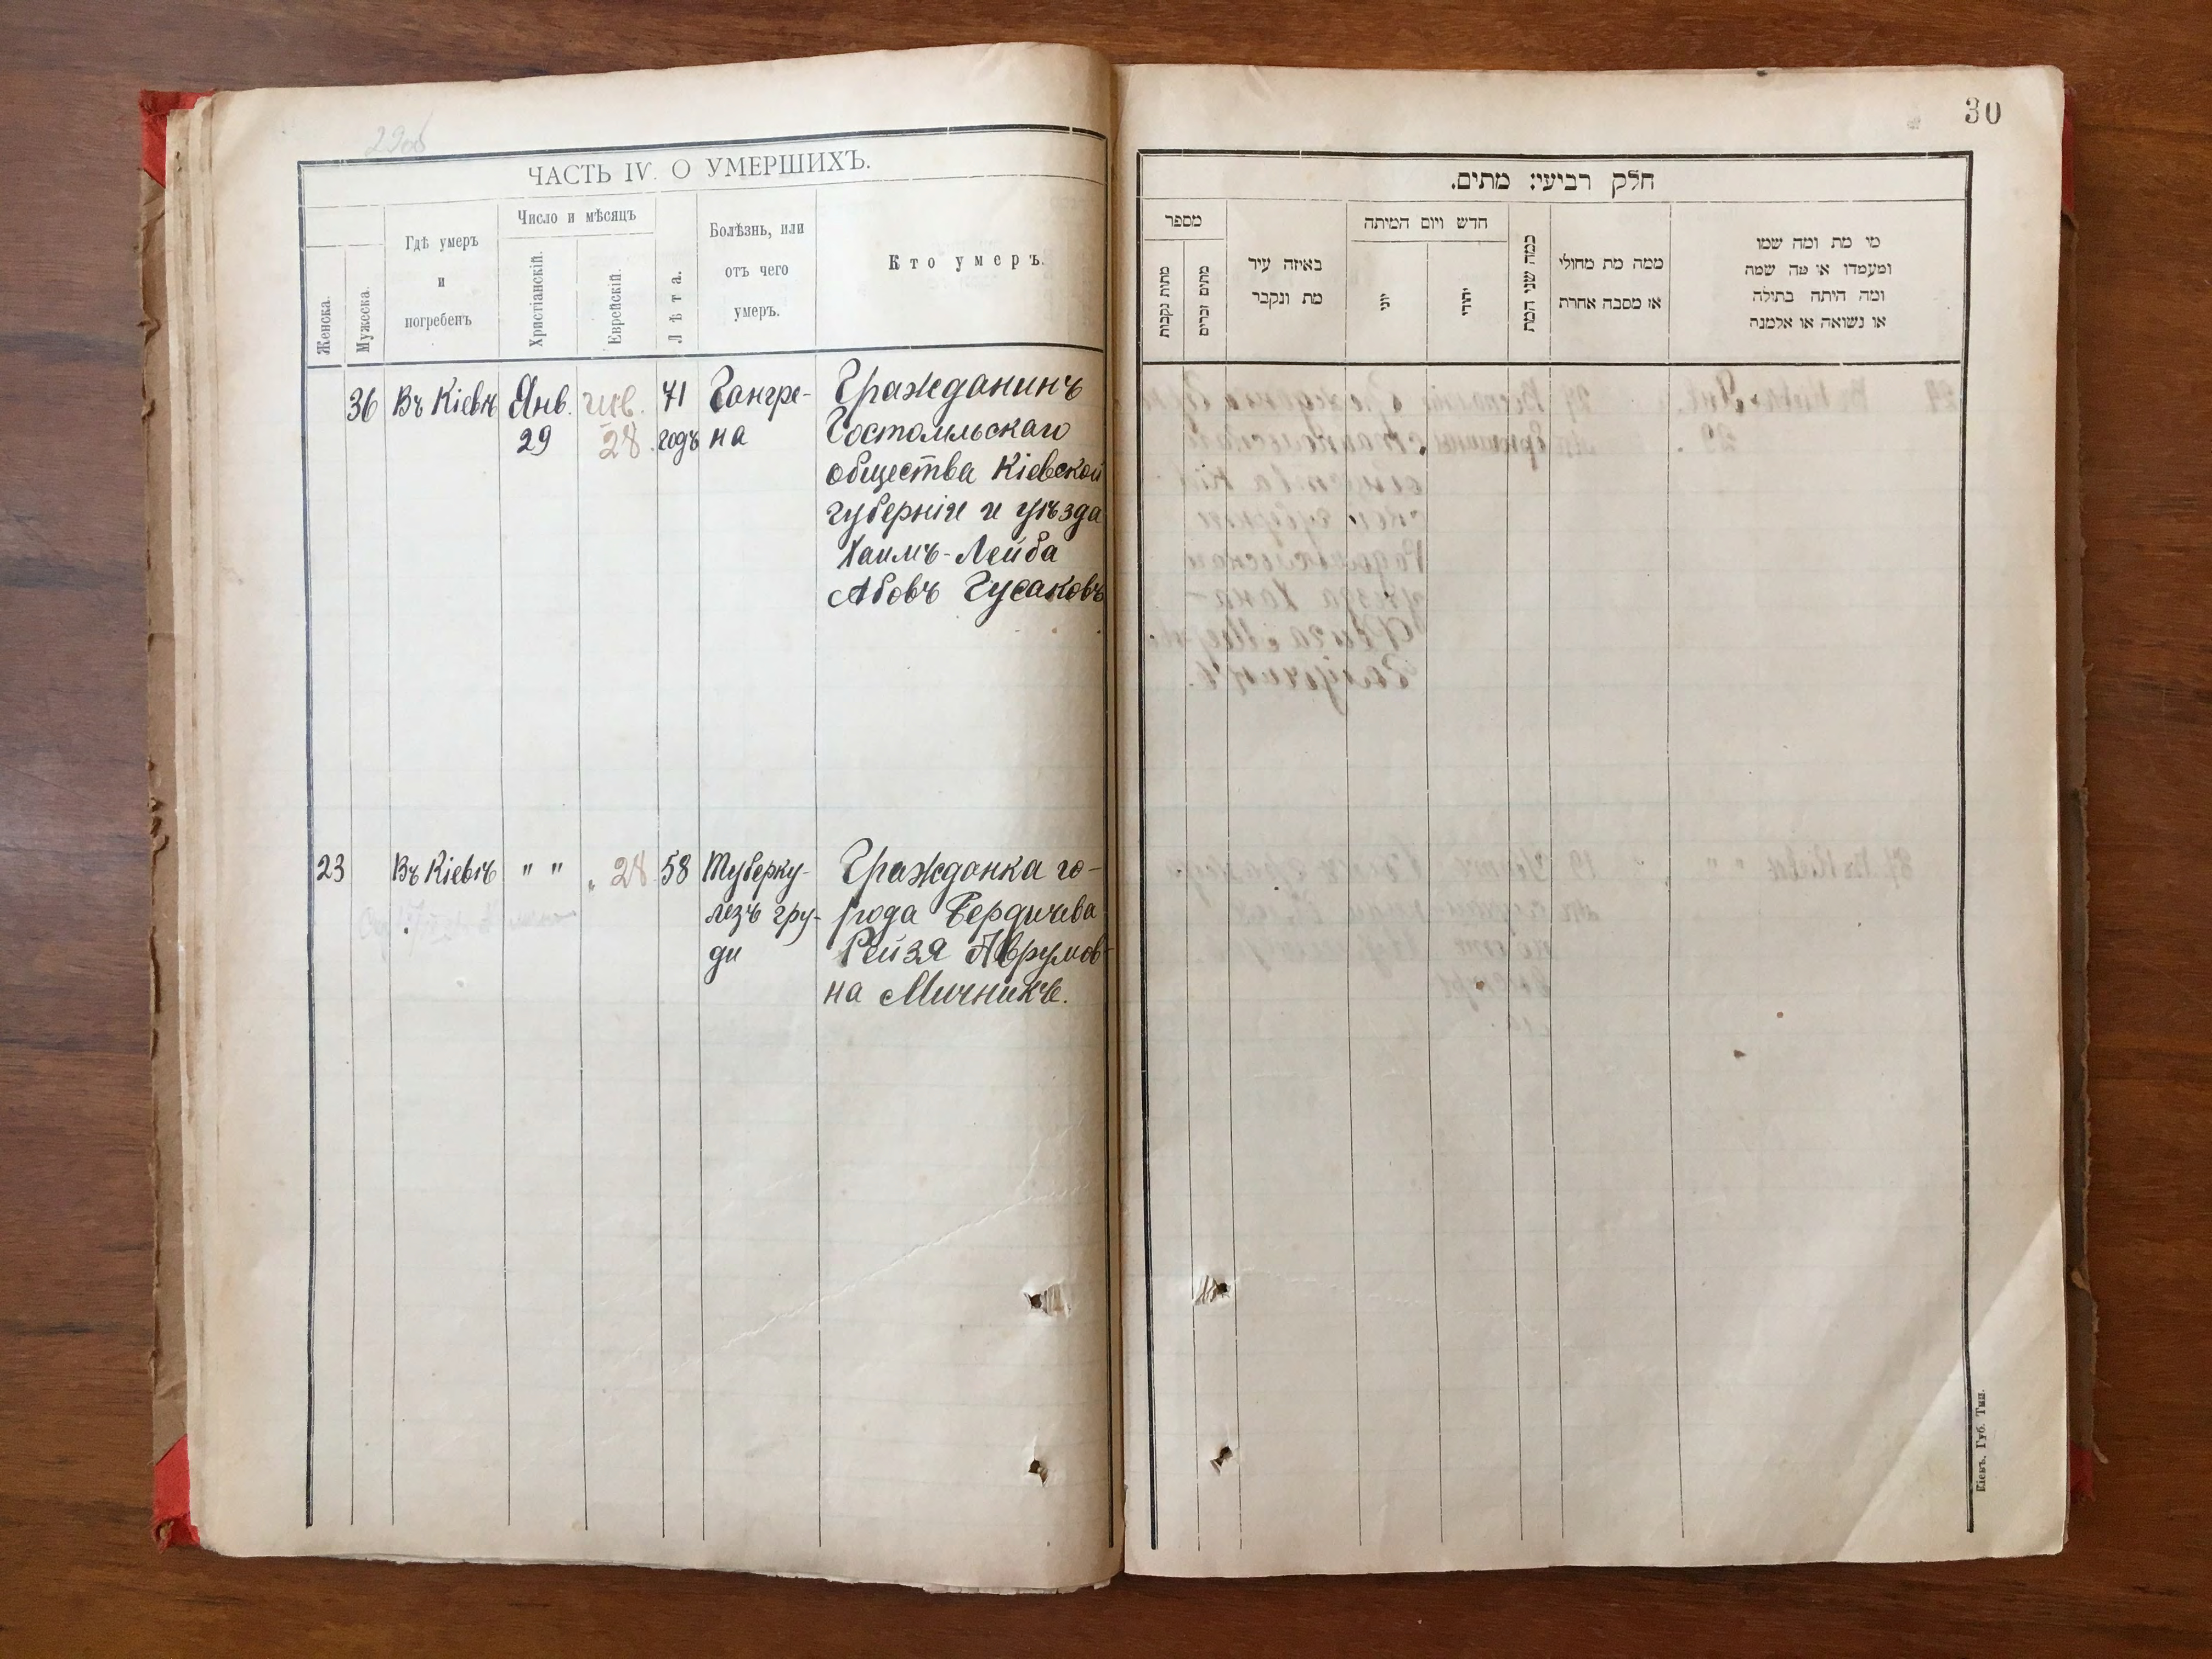 29об
ЧАСТЬ IV. О УМЕРШИХЪ.
Женска.
Мужеска.
Гдѣ умеръ
и
погребенъ
Число и мѣсяцъ
Христіанскій.
Еврейскій.
Лѣта.
Болѣзнь, или
отъ чего
умеръ.
Кто умеръ.
36 Въ Кіевѣ Янв. 71 Гангре- Гражданинъ
29 28 годъ на Гостомльскаго
общества Кіевской
губерніи и уѣзда
Хаимъ-Лейба
Абовъ Гусаковъ
23 Въ Кіевѣ " " " 28 58 Туберку- Гражданка го-
лезъ гру- рода Бердичева
ди Рейзя Аврумов-
на Мичникъ.
30
חלק רביעי: מתים.
מספר
מתות נקבות
מתים זכרים
באיזה עיר
מת ונקבר
חדש ויום המיתה
יוני
יהודי
כמה שני המת
ממה מת מחולי
או מסבה אחרת
מי מת ומה שמו
ומעמדו או מה שמה
ומה היתה בתילה
או נשואה או אלמנה
Кіевъ, Губ. Тип.